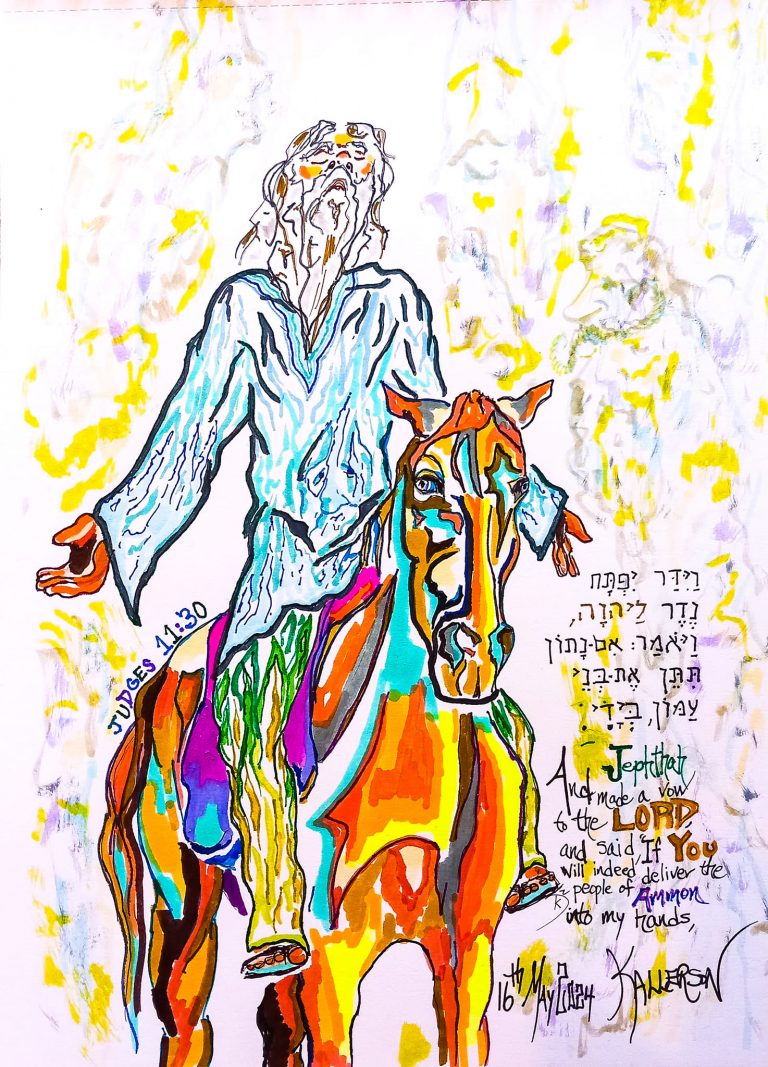 JUDGES 11:30
וַיִּדַּר יִפְתָּח
נֶדֶר לַיהוָה,
וַיֹּאמַר: אִם-נָתוֹן
תִּתֵּן אֶת-בְּנֵי
עַמּוֹן, בְּיָדִי:
Jephthah
And made a vow
to the LORD
and said, "If You
will indeed deliver the
people of Ammon
into my hands,
16th May 2024
KALLERSON